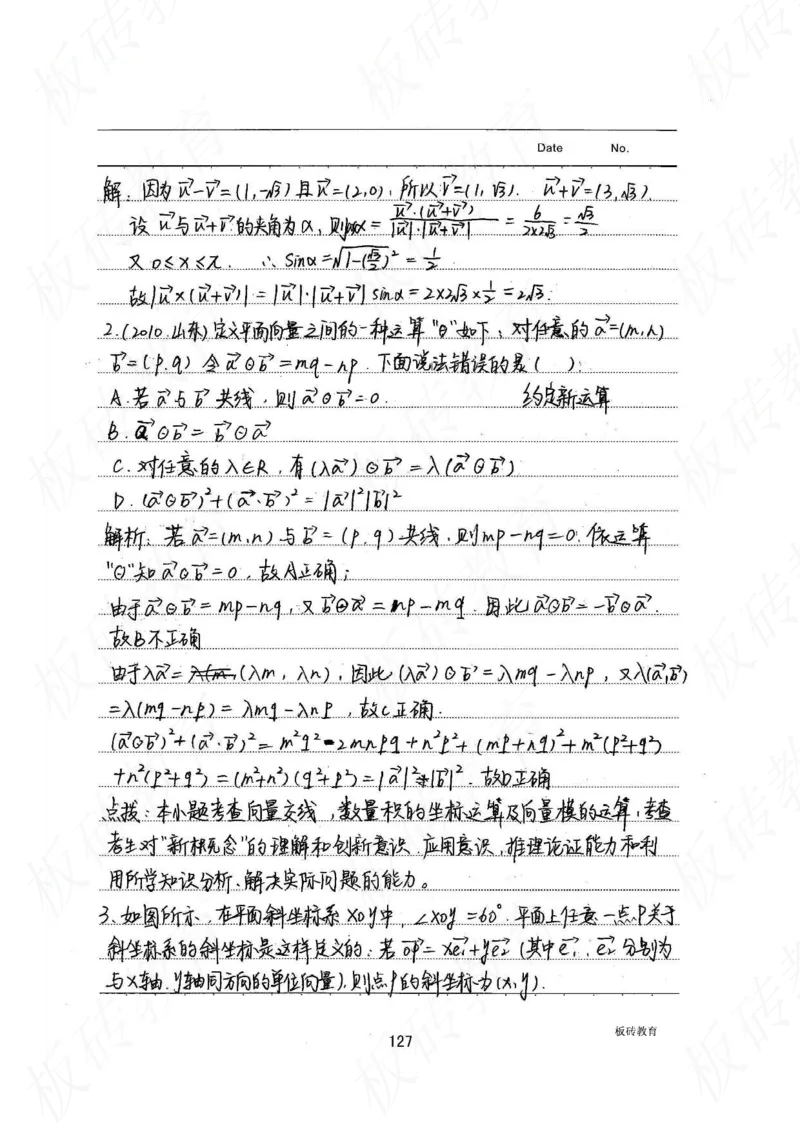 Date No.
解：因为 u⃗-v⃗=(1,-√3)且u⃗=(2,0)，所以v⃗=(1,√3). u⃗+v⃗=(3,√3).
设 u⃗与u⃗+v⃗的夹角为α，则cosα = u⃗·(u⃗+v⃗)/|u⃗|·|u⃗+v⃗| = 6/2×2√3 = √3/2
又 0≤x≤π. ∴ Sinα=√1-(√3/2)² = 1/2
故|u⃗×(u⃗+v⃗)| = |u⃗|·|u⃗+v⃗| sinα = 2×2√3×1/2 = 2√3.
2.(2010.山东)定义平面向量之间的一种运算"⊙"如下：对任意的 a⃗=(m,n)
b⃗=(p.q) 令 a⃗⊙b⃗=mq-np. 下面说法错误的是( ).
A.若a⃗与b⃗共线，则a⃗⊙b⃗=0. 约定新运算
B. a⃗⊙b⃗ = b⃗⊙a⃗
C. 对任意的λ∈R，有(λa⃗)⊙b⃗ = λ(a⃗⊙b⃗)
D. (a⃗⊙b⃗)²+(a⃗·b⃗)² = |a⃗|²|b⃗|²
解析：若a⃗=(m,n)与b⃗=(p,q)共线，则mp-nq=0.依运算
"⊙"知a⃗⊙b⃗=0，故A正确；
由于a⃗⊙b⃗=mp-nq，又b⃗⊙a⃗=np-mq.因此a⃗⊙b⃗=-b⃗⊙a⃗.
故B不正确
由于λa⃗=(λm，λn)，因此(λa⃗)⊙b⃗=λmq-λnp，又λ(a⃗,b⃗)
=λ(mq-np)=λmq-λnp，故C正确.
(a⃗⊙b⃗)²+(a⃗·b⃗)²=m²q²-2mnpq+n²p²+(mp+nq)²+m²(p²+q²)
+n²(p²+q²)=(m²+n²)(q²+p²)=|a⃗|²|b⃗|².故D正确
点拨：本小题考查向量交线，数量积的坐标运算及向量模的运算，考查
考生对"新概念"的理解和创新意识.应用意识，推理论证能力和利
用所学知识分析.解决实际问题的能力。
3、如图所示、在平面斜坐标系xoy中，∠xoy=60°.平面上任意一点P关于
斜坐标系的斜坐标是这样定义的：若op⃗=xe₁⃗+ye₂⃗(其中e₁⃗，e₂⃗分别为
与x轴.y轴同方向的单位向量).则点P的斜坐标为(x,y).
板砖教育
127